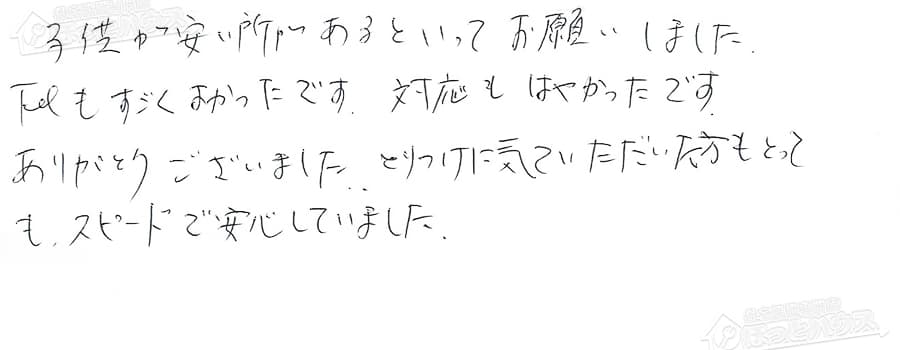 子供が安い所があるといってお願いしました.
Telもすごくよかったです. 対応もはやかったです
ありがとうございました.. とりつけに気ていただいた方もとって
も, スピードで安心していました.